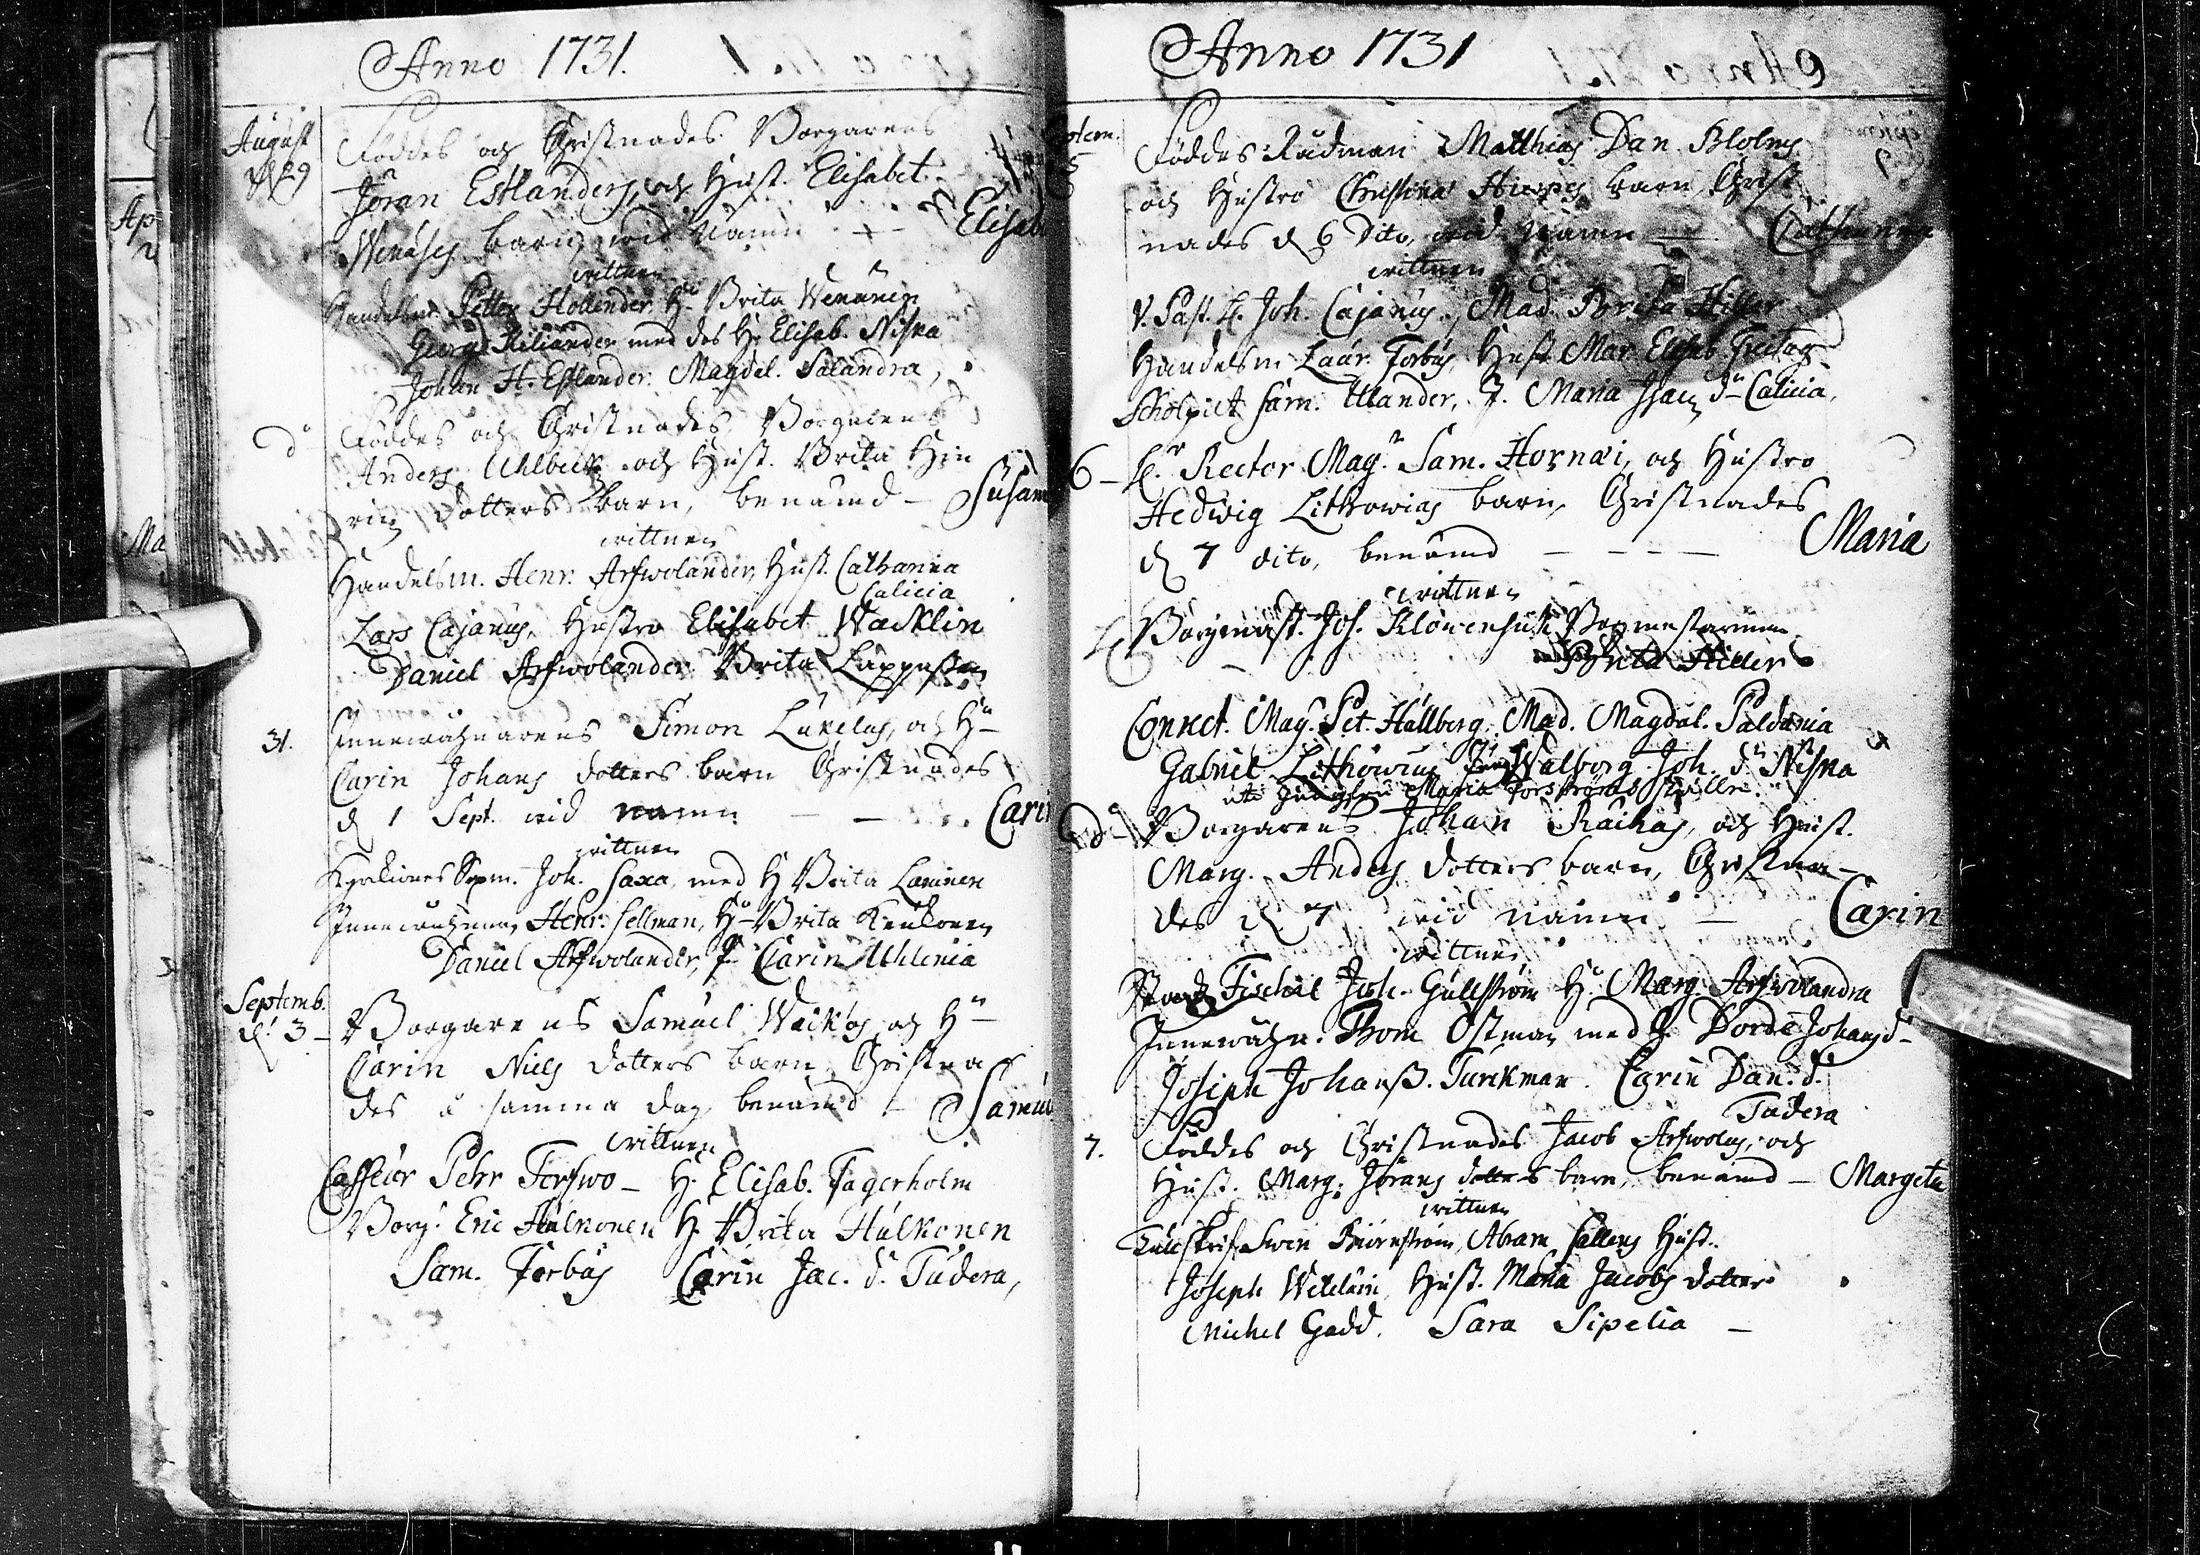 Anno 1731.
August
d 29
Föddes och Christnades Borgarens
Jöran Estlanders, och Hust. Elisabet
barn, wid Namn Elisab
wittnen
Handelsm. Petter Hollender Hu Brita Wenänen
Georg Kiliander med des H. Elisab. Nisna
Johan H. Estlander. Magdal. Salandra,
do
Föddes och Christnades Borgarens
Anders Uhlbeck och Hust. Brita Hin
rics dotters barn, benämd – Susan
wittnen
Handelsm. Henr. Arfwolander, Hust. Catharina
Calicia
Lars Cajanus, Hustro Elisabet Wacklin
Daniel Arfwolander Brita Lappaster
31.
Innewåhnarens Simon Lukelas, och Hu
Carin Johans dotters barn Christnades
d 1 Sept. wid namn Cari
wittnen
Joh. Saxa, med H Brita Laninen
Innewåhnar Henr. Sellman, Hu Brita Keukonen
Daniel Arfwolander, J. Carin Uhlenia
Septemb.
d. 3 –
Borgarens Samuel och Hu
Carin Niels dotters barn Christna
des å samma dag, benämd – Samu
wittnen
Casseur Pehr Terfwo – H. Elisab. Fagerholm
Borg. Eric Hulkonen H. Brita Hulkonen
Sam. Forbus Carin Jac. d. Tudera,
Anno 1731
ptem.
5
Föddes Rådman Matthias Dan. Blolms
och Hustro Christina barn, Christ
nades d 6 dito, wid Namn Catharina
wittnen
V. Past. H. Joh. Cajanus, Mad. Brita Hiller
Handelsm Laur. Forbus, Hust. Mar. Elisab. Freitag
Sam. Ulander, J. Maria Isacs dr Calicia,
6 –
H. Rector Magr. Sam. Hornæi, och Hustro
Hedwig Lithowias barn, Christnades
d 7 dito, benämd – – – – Maria
wittnen
Borgmäst. Joh. Borgmestarinnan
Brita Hiller
Conrect. Mag. Pet. Hallberg, Mad. Magdal. Paldania
Gabriel Lithowius Walborg Joh. dr Nisna
Maria
do
Borgarens Johan Raikas, och Hust.
Marg. Anders dotters barn, Christna–
des d 7 wid namn – Carin
wittnen
Fischal Joh. Gullström Hu Marg. Arfwolandra
Innewåhn. Thom. Ostman med H. Dorde Johans dr
Joseph Johanss. Turckman. Carin Dan. d.
Tudera
7.
Föddes och Christnades Jacob Arfwolas, och
Hust. Marg. Jörans dotters barn, benämd – Margeta
wittnen
Swen Biörnström, Abram Hust.
Joseph Hust. Maria Jacobs dotter
Michel Gadd. Sara Sipelia –